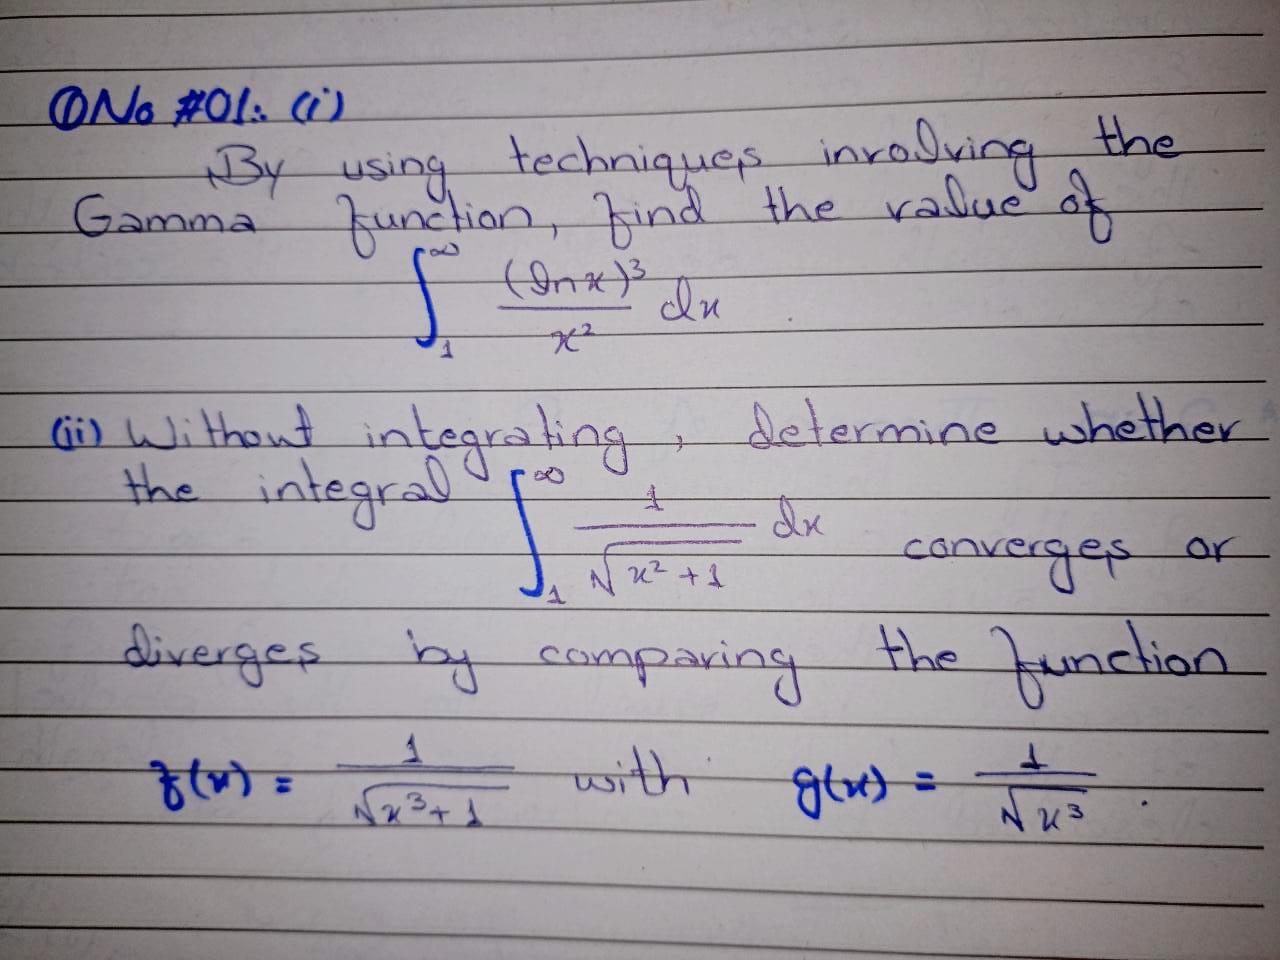 QNo #01: (i)
By using techniques involving the
Gamma function, find the value of
∫₁^∞ (ln x)³ / x² dx
(ii) Without integrating, determine whether
the integral ∫₁^∞ 1 / √(x² + 1) dx converges or
diverges by comparing the function
f(x) = 1 / √(x³ + 1) with g(x) = 1 / √(x³).